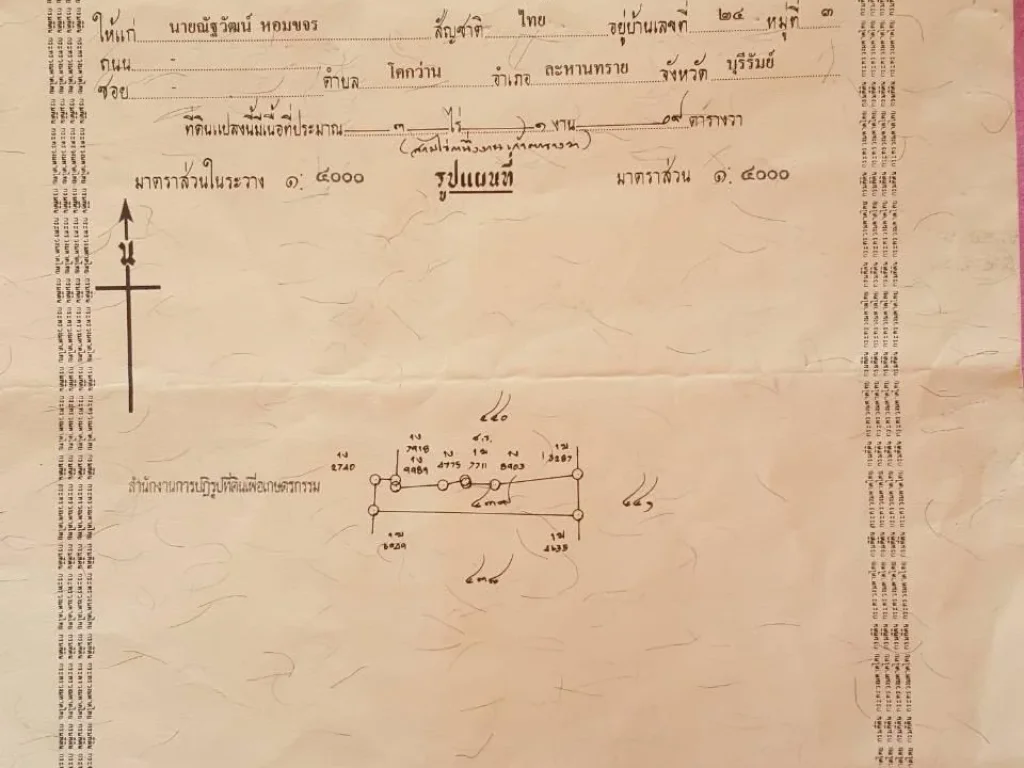 ให้แก่ นายณัฐวัฒน์ หอมขจร สัญชาติ ไทย อยู่บ้านเลขที่ ๒๔ หมู่ที่ ๓
ถนน -
ซอย - ตำบล โคกว่าน อำเภอ ละหานทราย จังหวัด บุรีรัมย์
ที่ดินแปลงนี้มีเนื้อที่ประมาณ ๓ ไร่ ๑ งาน ๐๙ ตารางวา
(สามไร่หนึ่งงานเก้าตารางวา)
มาตราส่วนในระวาง ๑: ๔๐๐๐ รูปแผนที่ มาตราส่วน ๑: ๔๐๐๐
น
๔๔๐
2740
7918
9989
4775
7711
8903
3287
สำนักงานการปฏิรูปที่ดินเพื่อเกษตรกรรม
๔๓๙
๔๔๑
4635
๔๓๘